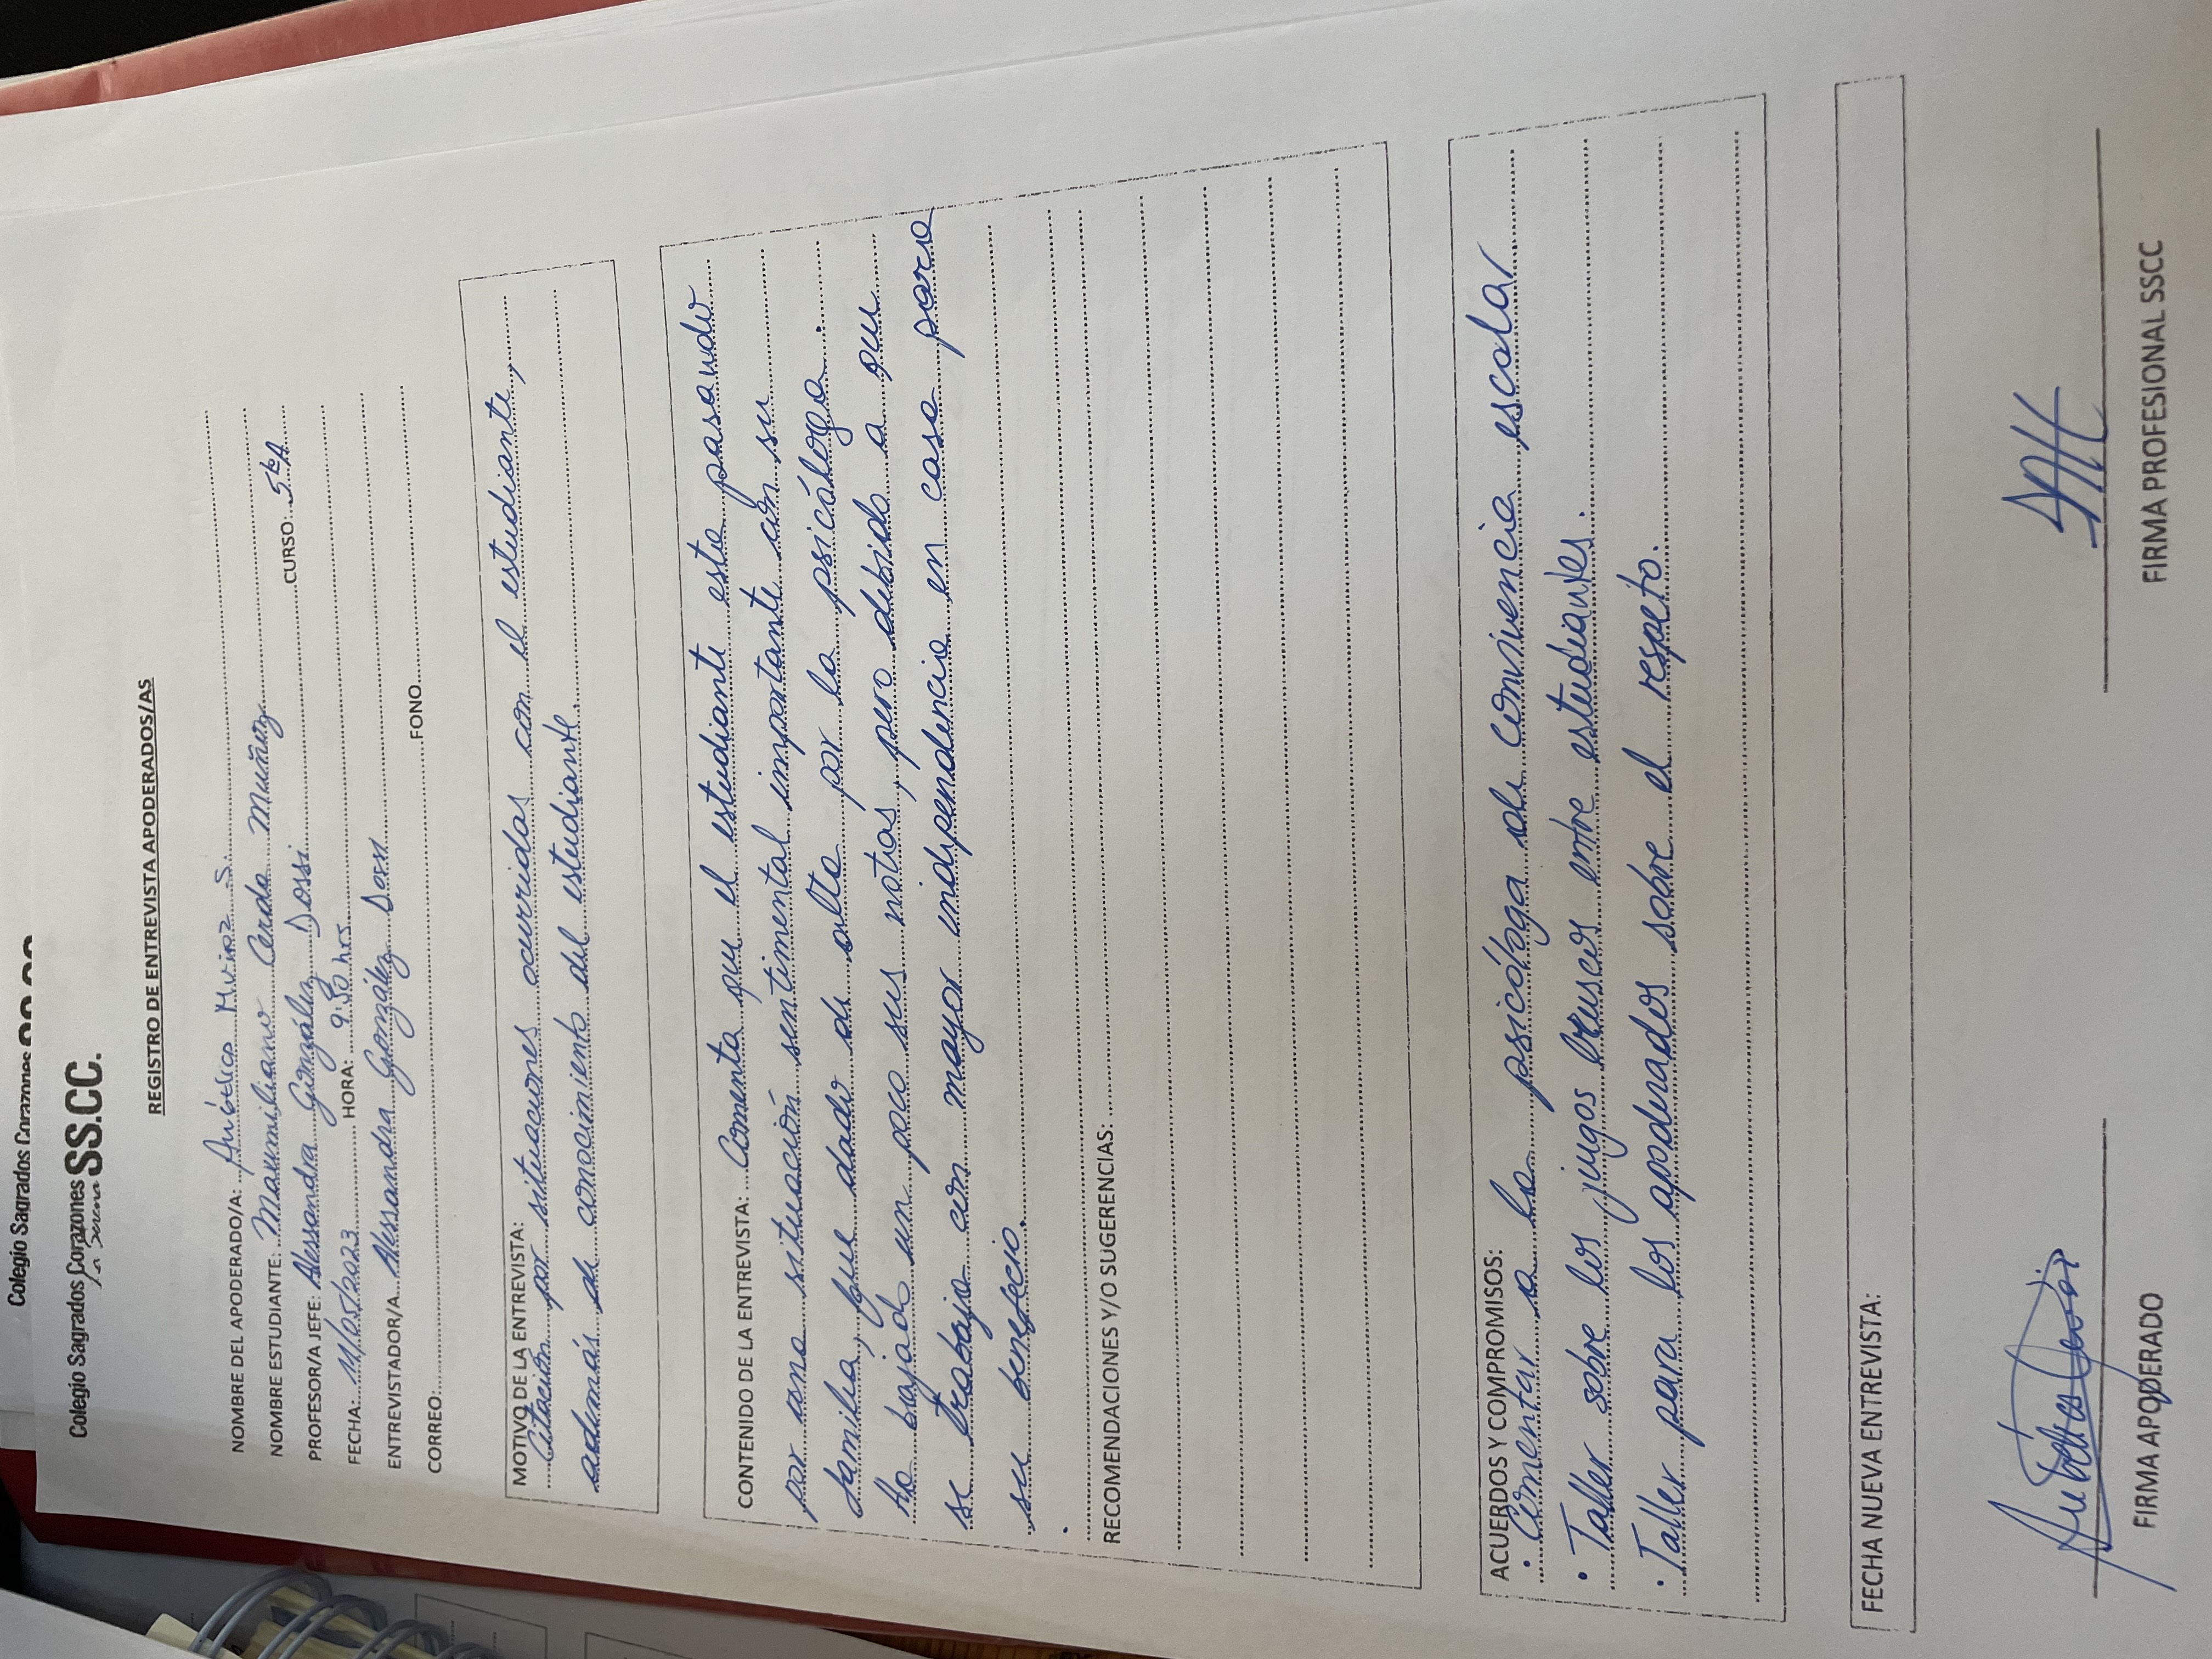 Colegio Sagrados Corazones
Colegio Sagrados Corazones SS.CC.
La Serena
REGISTRO DE ENTREVISTA APODERADOS/AS
NOMBRE DEL APODERADO/A: Angélica Muñoz S.
NOMBRE ESTUDIANTE: Maximiliano Cerda Muñoz
PROFESOR/A JEFE: Alessandra González Dossi CURSO: 5ºA
FECHA: 11/05/2023 HORA: 9:30 hrs
ENTREVISTADOR/A Alessandra González Dossi
CORREO: FONO
MOTIVO DE LA ENTREVISTA:
Citación por situaciones ocurridas con el estudiante,
además de conocimiento del estudiante.
CONTENIDO DE LA ENTREVISTA: Comenta que el estudiante esta pasando
por una situación sentimental importante con su
familia, fue dado de alta por la psicóloga.
Ha bajado un poco sus notas, pero debido a que
se trabaja con mayor independencia en casa para
su beneficio.
RECOMENDACIONES Y/O SUGERENCIAS:
ACUERDOS Y COMPROMISOS:
· Comentar a la psicóloga de convivencia escolar
· Taller sobre los juegos bruscos entre estudiantes.
· Taller para los apoderados sobre el respeto.
FECHA NUEVA ENTREVISTA:
FIRMA APODERADO FIRMA PROFESIONAL SSCC